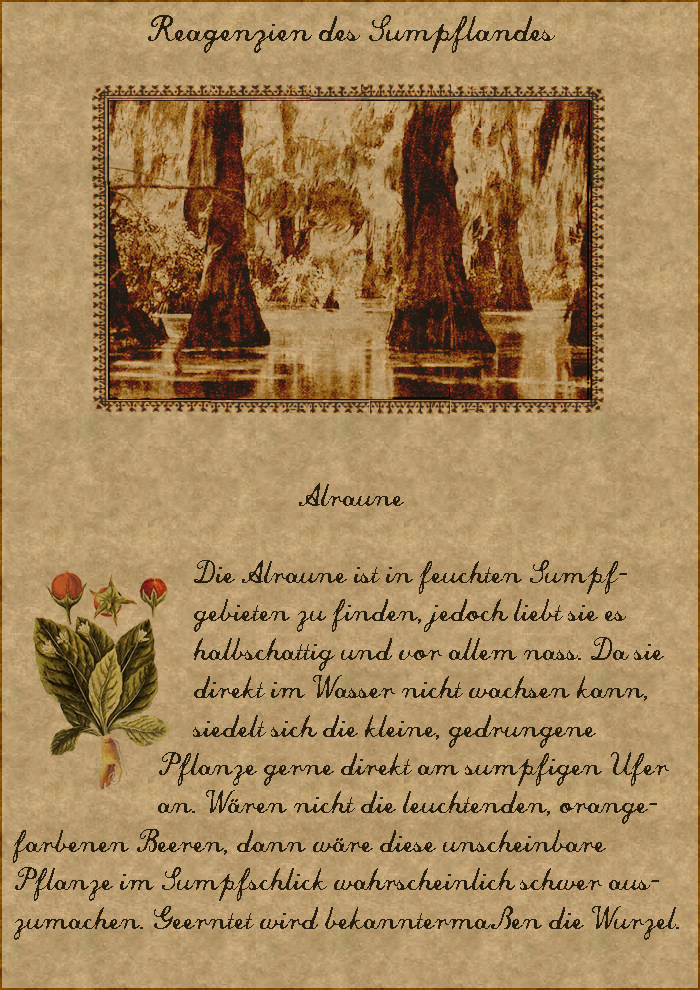 Reagenzien des Sumpflandes
Alraune
Die Alraune ist in feuchten Sumpf-
gebieten zu finden, jedoch liebt sie es
halbschattig und vor allem nass. Da sie
direkt im Wasser nicht wachsen kann,
siedelt sich die kleine, gedrungene
Pflanze gerne direkt am sumpfigen Ufer
an. Wären nicht die leuchtenden, orange-
farbenen Beeren, dann wäre diese unscheinbare
Pflanze im Sumpfschlick wahrscheinlich schwer aus-
zumachen. Geerntet wird bekanntermaßen die Wurzel.